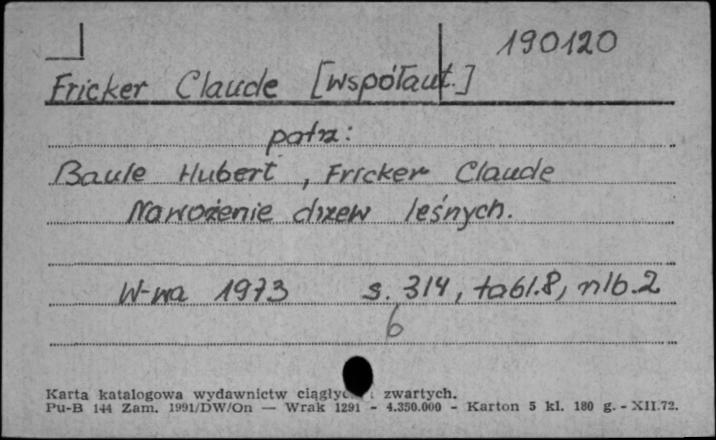 190120
Fricker Claude [współaut.]
patrz:
Baule Hubert, Fricker Claude
Nawożenie drzew leśnych.
W-wa 1973 s. 314, tabl. 8, nlb. 2
6
Karta katalogowa wydawnictw i zwartych.
Pu-B 144 Zam. 1991/DW/On — Wrak 1291 - 4.350.000 - Karton 5 kl. 180 g. - XII.72.